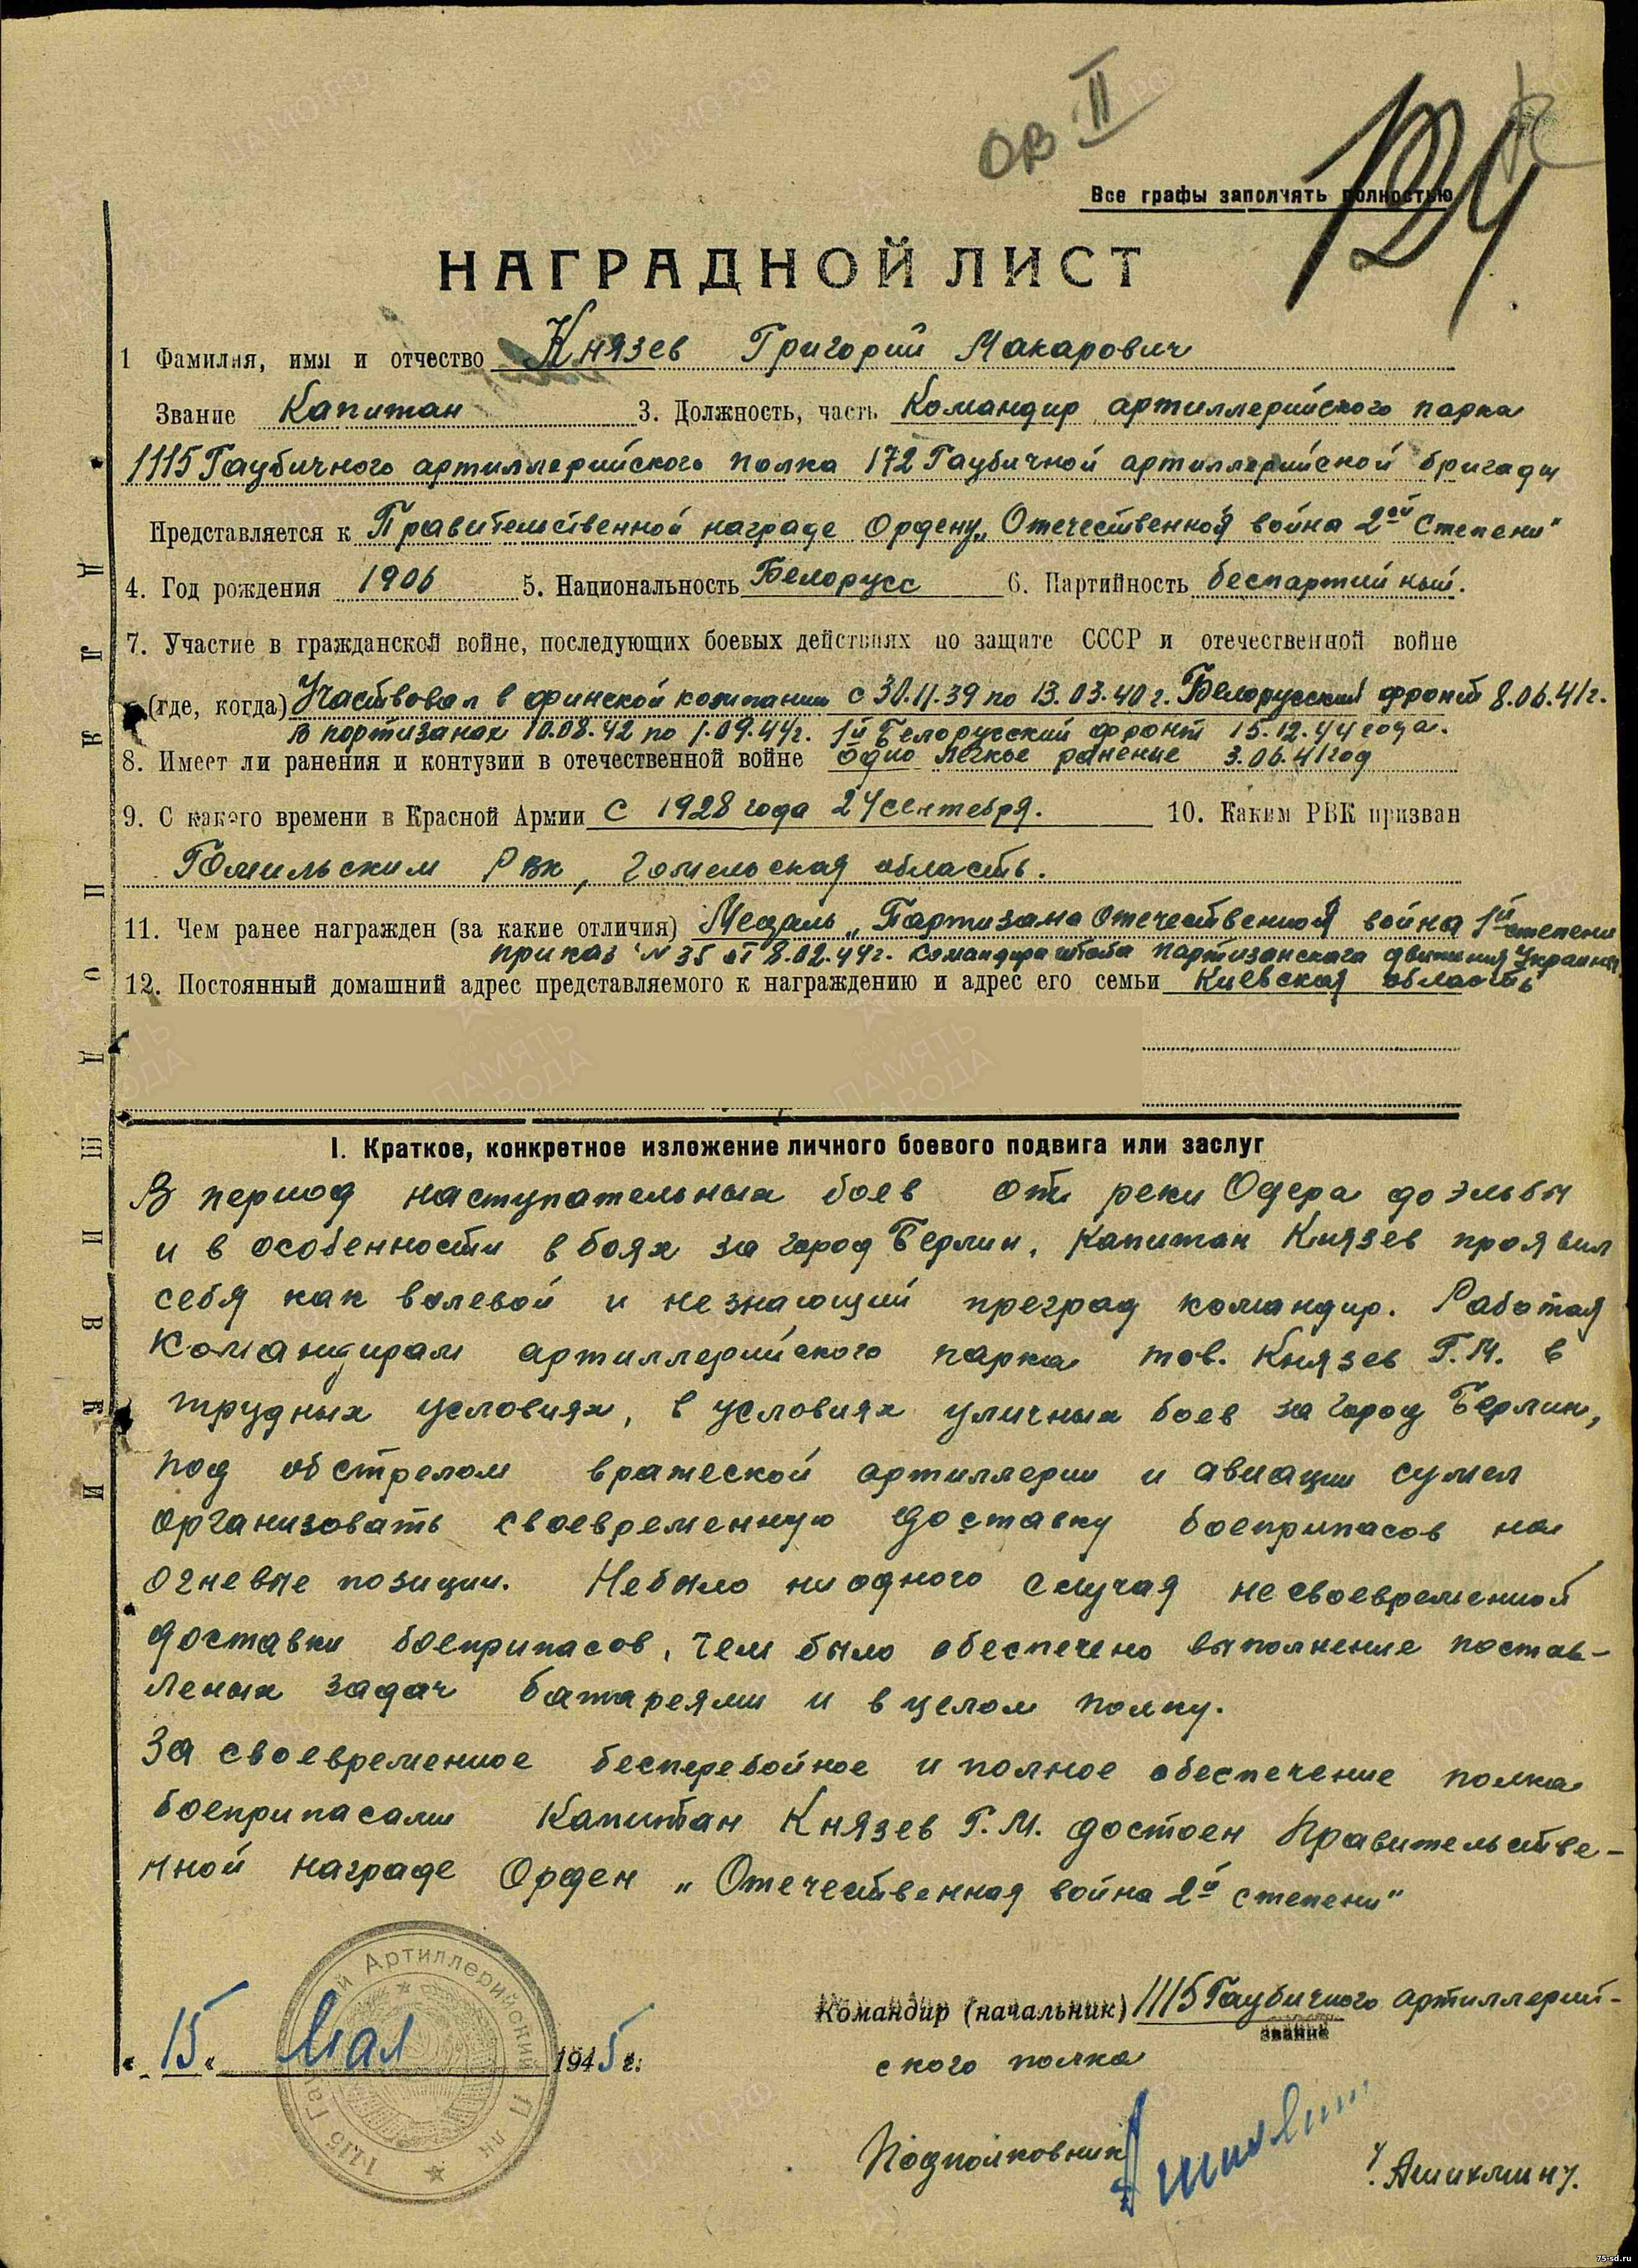 ОВ II
Все графы заполнять полностью
НАГРАДНОЙ ЛИСТ
1 Фамилия, имя и отчество Князев Григорий Макарович
Звание Капитан 3. Должность, часть Командир артиллерийского парка
1115 Гаубичного артиллерийского полка 172 Гаубичной артиллерийской бригады
Представляется к Правительственной награде Ордену „Отечественной война 2ой Степени"
4. Год рождения 1906 5. Национальность Белорусс 6. Партийность беспартийный.
7. Участие в гражданской войне, последующих боевых действиях по защите СССР и отечественной войне
(где, когда) Участвовал в финской компании с 30.11.39 по 13.03.40 г. Белорусский фронт 8.06.41г.
В партизанах 10.08.42 по 1.09.44г. 1й Белорусский фронт 15.12.44 года.
8. Имеет ли ранения и контузии в отечественной войне одно легкое ранение 3.06.41год
9. С какого времени в Красной Армии С 1928 года 24 сентября. 10. Каким РВК призван
Гомильским Рвк, Гомельская область.
11. Чем ранее награжден (за какие отличия) Медаль „Партизана Отечественной война 1й степени
приказ №35 от 8.02.44г. командира штаба партизанскага движения Украины
12. Постоянный домашний адрес представляемого к награждению и адрес его семьи Киевская область
I. Краткое, конкретное изложение личного боевого подвига или заслуг
В период наступательных боев от реки Одера до Эльбы
и в особенности в боях за город Берлин, Капитан Князев проявил
себя как волевой и незнающий преград командир. Работая
Командирам артиллерийского парка тов. Князев Г.М. в
трудных условиях, в условиях уличных боев за город Берлин,
под обстрелом вражеской артиллерии и авиации сумел
организовать своевременную доставку боеприпасов на
огневые позиции. Небыло ниодного случая несвоевременной
доставки боеприпасов, чем было обеспечено выполнение постав-
леных задач батареями и вцелом полку.
За своевременное бесперебойное и полное обеспечение полка
боеприпасами Капитан Князев Г.М. достоен Правительстве-
нной награде Орден „Отечественная война 2й степени"
Командир (начальник) 1115 Гаубичного артиллерий-
звание
ского полка
„15„ Мая 1945 г.
1115 Артиллерийский
Подполковник /Ашихмин/.
ДЛЯ ПОДШИВКИ
ПАМЯТЬ НАРОДА
ЦАМО.РФ
75-sd.ru